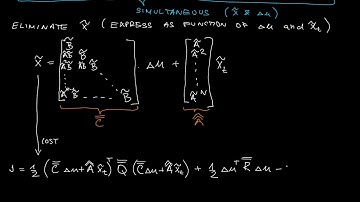 SIMULTANEOUS (X̃ & Δu)
ELIMINATE X̃ (EXPRESS AS FUNCTION OF Δu and x̃t)
X̃ = [B̃; ÃB̃ B̃; ÃB̃ ÃB̃ B̃; ⋮ ⋱; Ã B̃ - - - - B̃] · Δu + [Ã; Ã²; ⋮; Ãᴺ] x̃t
C̿ Â̿
COST
J = 1/2 (C̿ Δu + Â̿ x̃t)ᵀ Q̿ (C̿ Δu + Â̿ x̃t) + 1/2 Δuᵀ R̿ Δu - ..